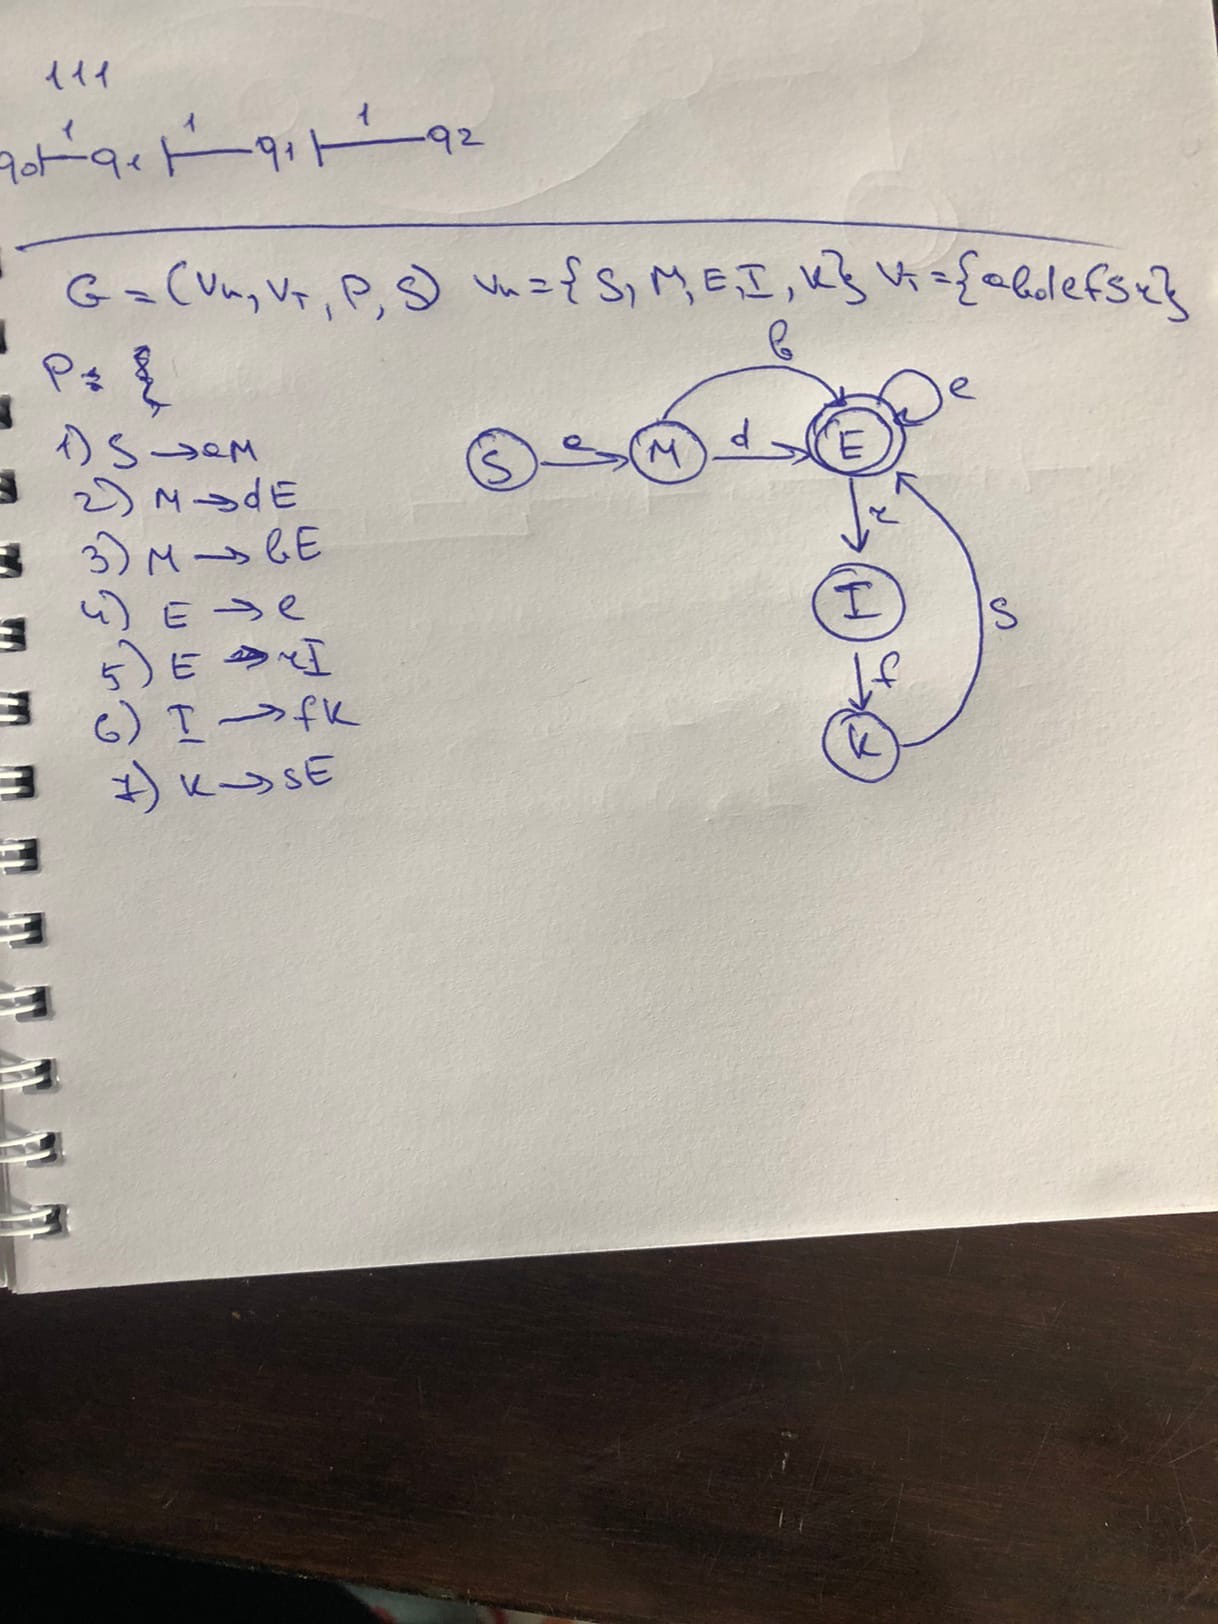 111
q0 |—1— q1 |—1— q1 |—1— q2
G = (Vn, VT, P, S) Vn = {S, M, E, I, K} VT = {abdefsr}
P = {
1) S → aM
2) M → dE
3) M → bE
4) E → e
5) E → rI
6) I → fK
7) K → sE
b
e
S a M d E
r
I
s
f
K